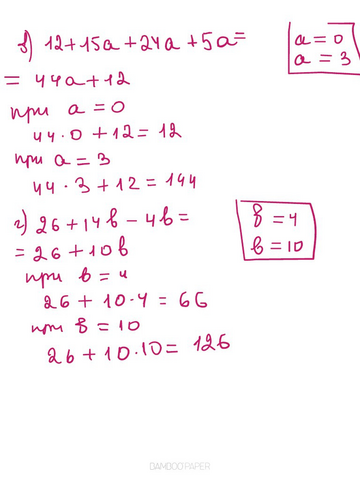 в) 12+15a+24a+5a=
a=0
a=3
= 44a+12
при a=0
44·0+12=12
при a=3
44·3+12=144
г) 26+14b-4b=
b=4
b=10
=26+10b
при b=4
26+10·4=66
при b=10
26+10·10=126
BAMBOO PAPER